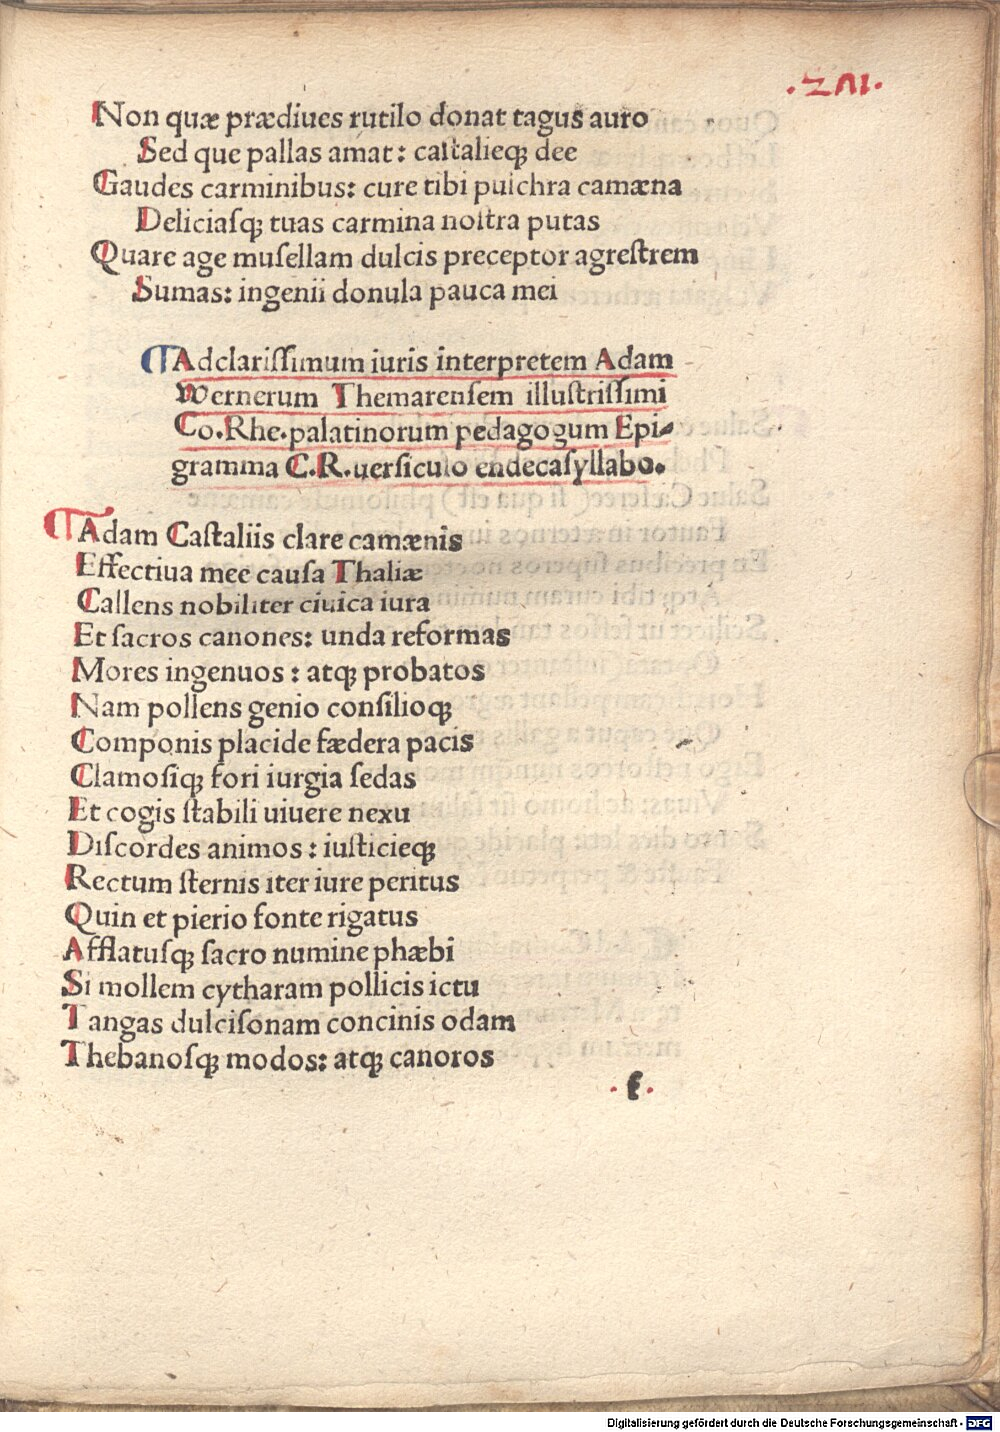 Non quæ prædiues rutilo donat tagus auro
Sed que pallas amat: caſtalieq; dee
Gaudes carminibus: cure tibi pulchra camæna
Deliciaſq; tuas carmina noſtra putas
Quare age muſellam dulcis preceptor agreſtrem
Sumas: ingenii donula pauca mei
Adclariſſimum iuris interpretem Adam
Wernerum Themarenſem illuſtriſſimi
Co.Rhe.palatinorum pedagogum Epi⸗
gramma C.R.uerſiculo endecaſyllabo.
Adam Caſtaliis clare camænis
Effectiua mee cauſa Thaliæ
Callens nobiliter ciuica iura
Et ſacros canones: unda reformas
Mores ingenuos: atq; probatos
Nam pollens genio conſilioq;
Componis placide fædera pacis
Clamoſiq; fori iurgia ſedas
Et cogis ſtabili uiuere nexu
Diſcordes animos: iuſticieq;
Rectum ſternis iter iure peritus
Quin et pierio fonte rigatus
Afflatuſq; ſacro numine phæbi
Si mollem cytharam pollicis ictu
Tangas dulciſonam concinis odam
Thebanoſq; modos: atq; canoros
Digitalisierung gefördert durch die Deutsche Forschungsgemeinschaft - DFG